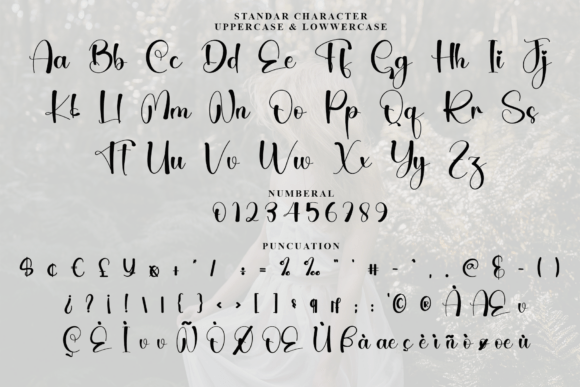 STANDAR CHARACTER
UPPERCASE & LOWWERCASE
Aa Bb Cc Dd Ee Ff Gg Hh Ii Jj
Kk Ll Mm Nn Oo Pp Qq Rr Ss
Tt Uu Vv Ww Xx Yy Zz
NUMBERAL
0123456789
PUNCUATION
$ ¢ € £ ¥ + / ÷ = % ‰ " ' # - ` , . @ & - ( )
¿ ? ¡ ! \ | { } < > [ ] § ¶ ; : ' © ® À Æ
Ç È Ì Ñ Ò Ø Œ Ù ß à æ ç è ì ñ ò ø œ ù